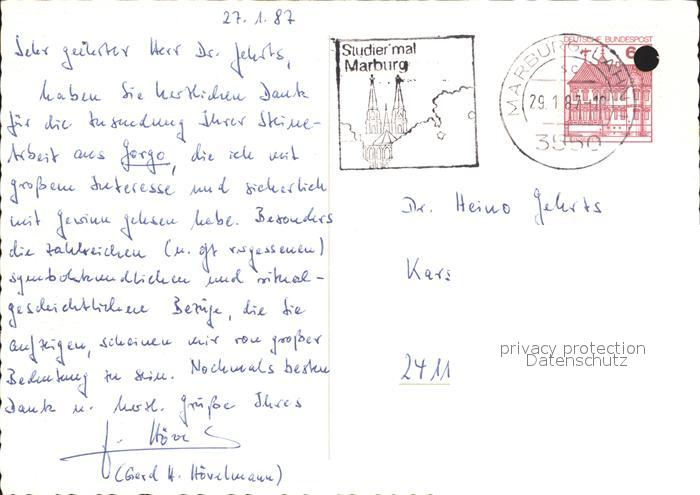 27.1.87
Sehr geehrter Herr Dr. Gehrts,
haben Sie herzlichen Dank
für die Zusendung Ihrer Steine-
Arbeit aus Gorgo, die ich mit
großem Interesse und sicherlich
mit Gewinn gelesen habe. Besonders
die zahlreichen (u. oft vergessenen)
symbolkundlichen und ritual-
geschichtlichen Bezüge, die Sie
aufzeigen, scheinen mir von großer
Bedeutung zu sein. Nochmals besten
Dank u. herzl. Grüße Ihres
(Gerd H. Hövelmann)
Studier mal
Marburg
DEUTSCHE BUNDESPOST
MARBURG, LAHN
29.1.87
3550
Dr. Heino Gehrts
2411
privacy protection
Datenschutz